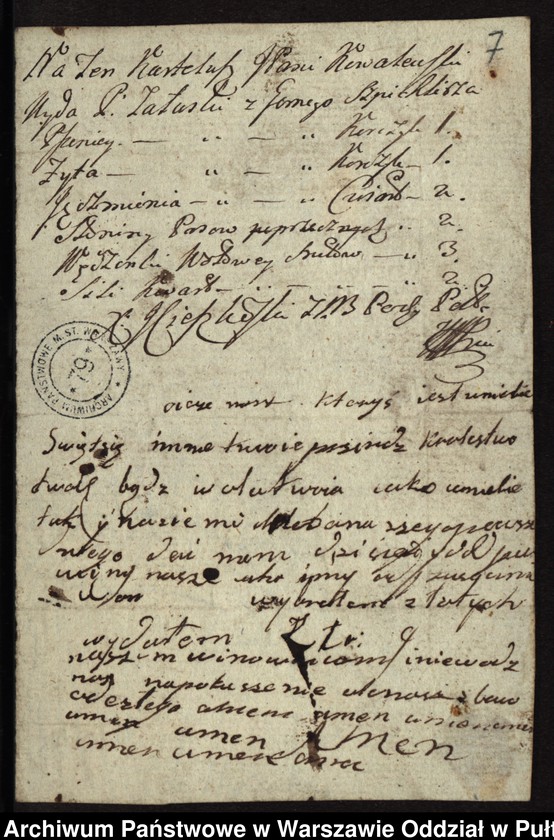 7
Na Ten Kartelusz Pani Kowalewski
Wyda P. Załuski z Gornego Szpichlirza
Pszenicy — „ — „ Korczyk 1.
Żyta — „ — „ Korczyk — 1.
Jęczmienia — „ — „ Cwiart — 2.
Słoniny Pasow poprzecznych „ 2.
Wędzonki Wołowey Sztukow — „ 3.
Soli Kwart — „ — 2.
ARCHIWUM PAŃSTWOWE M. ST. WARSZAWY
oicze nasz ktorys iest wniebie
Swięć się imme twoie przindz krolestwo
twoie bądz wola twoia iako wniebie
tak y nazie mi chleba naszego powsze
dniego dai nam dzisiaj y od pus
winy nasze iako y my od puszczamy
wybrałem złotych
wydałem Złr:
naszem winowaicom i niewodz
nas napokuszenie ale nas zbaw
odezłego amen amen amen
amen amen Amen
amen amen
Archiwum Państwowe w Warszawie Oddział w Puł